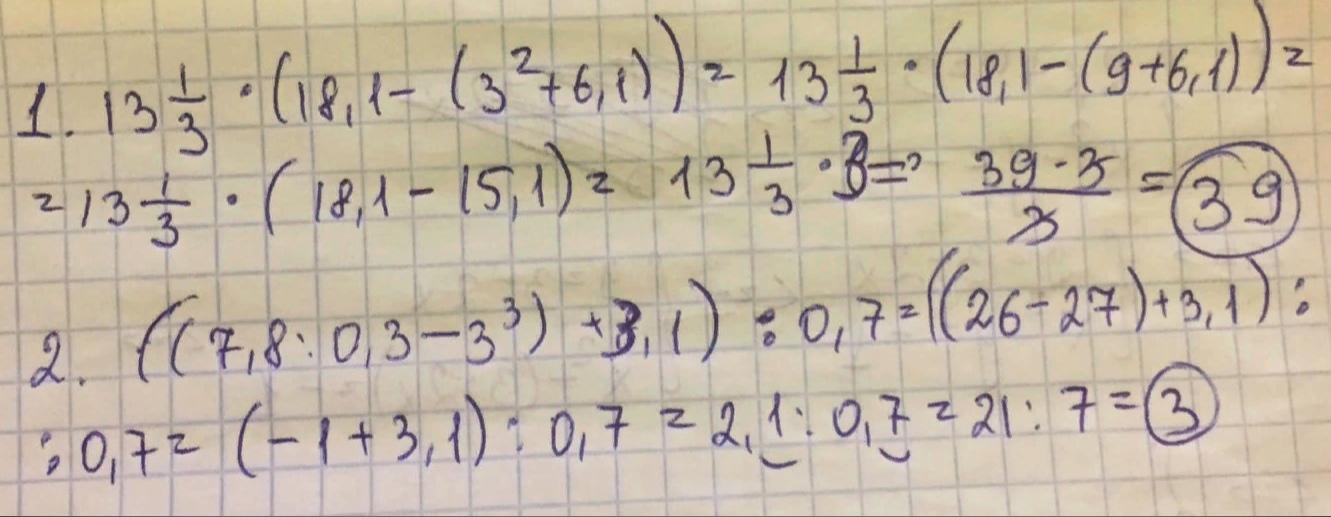 1. 13 1/3 · (18,1 - (3² + 6,1)) = 13 1/3 · (18,1 - (9 + 6,1)) =
= 13 1/3 · (18,1 - 15,1) = 13 1/3 · 3 = (39 · 3)/3 = 39
2. ((7,8 : 0,3 - 3³) + 3,1) : 0,7 = ((26 - 27) + 3,1) :
: 0,7 = (-1 + 3,1) : 0,7 = 2,1 : 0,7 = 21 : 7 = 3